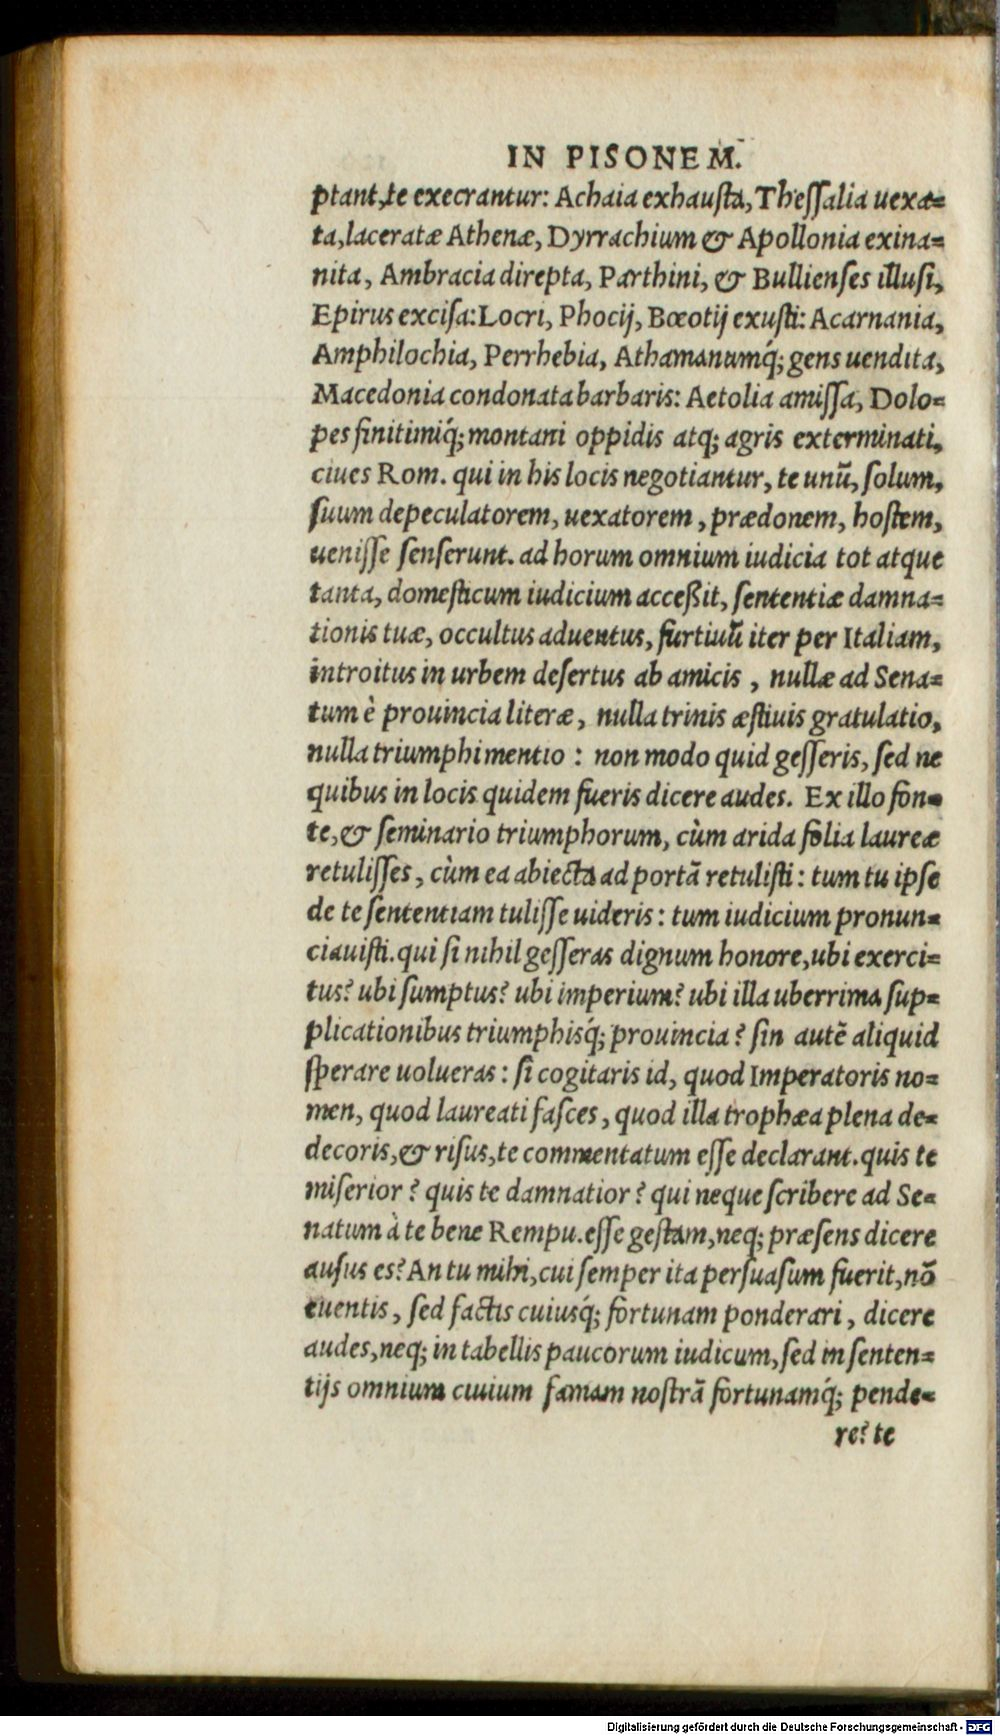 IN PISONEM.
ptant, te execrantur: Achaia exhauſta, Theſſalia uexa=
ta, laceratæ Athenæ, Dyrrachium & Apollonia exina=
nita, Ambracia direpta, Parthini, & Bullienſes illuſi,
Epirus exciſa: Locri, Phocij, Bœotij exuſti: Acarnania,
Amphilochia, Perrhebia, Athamanumq́; gens uendita,
Macedonia condonata barbaris: Aetolia amiſſa, Dolo=
pes finitimiq́; montani oppidis atq; agris exterminati,
ciues Rom. qui in his locis negotiantur, te unũ, ſolum,
ſuum depeculatorem, uexatorem, prædonem, hoſtem,
ueniſſe ſenſerunt. ad horum omnium iudicia tot atque
tanta, domeſticum iudicium acceßit, ſententiæ damna=
tionis tuæ, occultus aduentus, furtiuũ iter per Italiam,
introitus in urbem deſertus ab amicis, nullæ ad Sena=
tum è prouincia literæ, nulla trinis æſtiuis gratulatio,
nulla triumphi mentio: non modo quid geſſeris, ſed ne
quibus in locis quidem fueris dicere audes. Ex illo fon=
te, & ſeminario triumphorum, cùm arida folia laureæ
retuliſſes, cùm ea abiecta ad portã retuliſti: tum tu ipſe
de te ſententiam tuliſſe uideris: tum iudicium pronun=
ciauiſti. qui ſi nihil geſſeras dignum honore, ubi exerci=
tus? ubi ſumptus? ubi imperium? ubi illa uberrima ſup=
plicationibus triumphisq́; prouincia? ſin autẽ aliquid
ſperare uolueras: ſi cogitaris id, quod Imperatoris no=
men, quod laureati faſces, quod illa trophæa plena de=
decoris, & riſus, te commentatum eſſe declarant. quis te
miſerior? quis te damnatior? qui neque ſcribere ad Se=
natum à te bene Rempu. eſſe geſtam, neq; præſens dicere
auſus es? An tu mihi, cui ſemper ita perſuaſum fuerit, nõ
euentis, ſed factis cuiusq́; fortunam ponderari, dicere
audes, neq; in tabellis paucorum iudicum, ſed in ſenten=
tijs omnium ciuium famam noſtrã fortunamq́; pende=
re? te
Digitalisierung gefördert durch die Deutsche Forschungsgemeinschaft - DFG